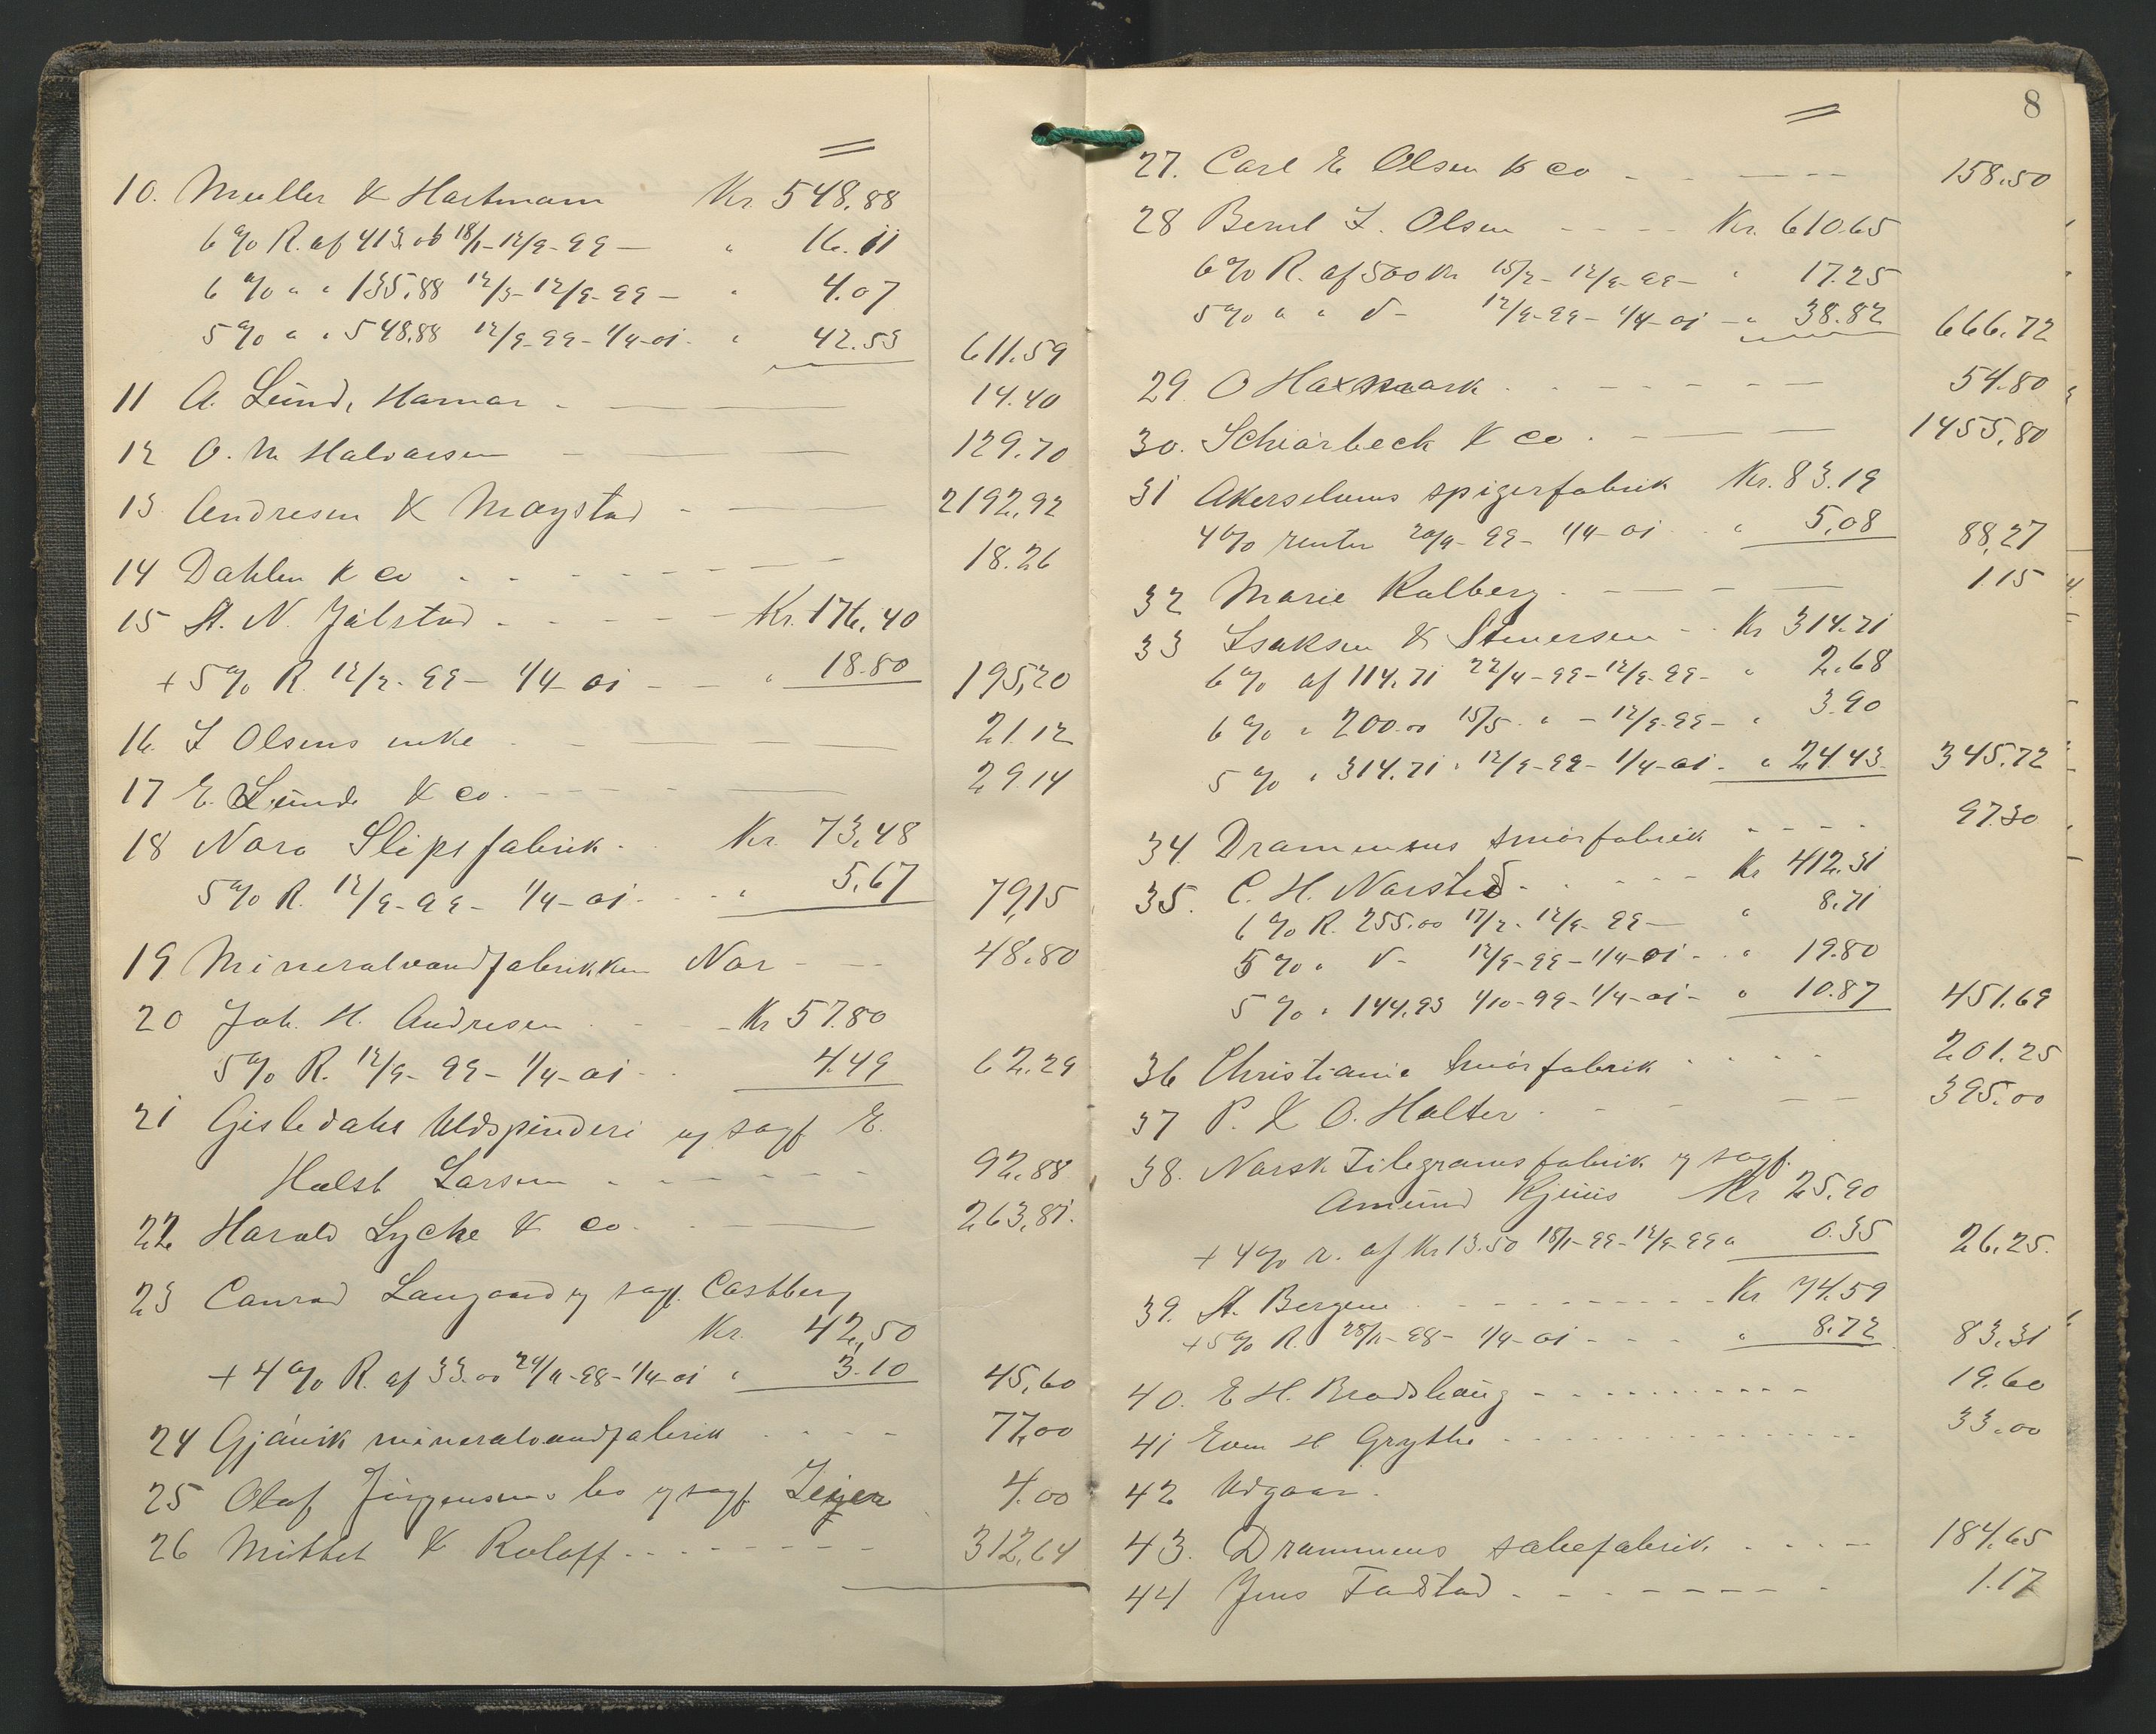 10. Muller & Hartmann Kr. 548.88
6 % R. af 413.00 18/1-12/9-99 — " 16.11
6 % " " 135.88 12/3-12/9-99 — " 4.07
5 % " " 548.88 12/9-99 - 1/4-01 - " 42.53 611.59
11 A. Lund, Hamar - 14.40
12 O. M Halvorsen 129.70
13 Andresen & Maystad - 2192,92
14 Dahlen & Co 18.26
15 A. N. Jølstad - Kr. 176,40
+ 5 % R. 12/2-99 - 1/4-01 - " 18.80 195,20
16. I Olsens enke 21.12
17 E. Sunde & Co. 29 14
18 Nora Slipsfabrik. Kr. 73,48
5 % R. 12/9-99 - 1/4-01 - " 5,67 79,15
19 Mineralvandfabrikken Nor - 48.80
20 Joh. H. Andresen - Kr 57.80
5 % R. 12/9-99 - 1/4-01 - 4.49 62.29
21 Gisledahs Uldspinderi og sagf E.
Holst Larsen 92,88
22 Harald Lyche & Co. 263,81.
23 Conrad Langaard og sagf. Castberg
Kr. 42,50
+ 4 % R. af 33.00 24/11-98 - 1/4-01 " 3.10 45,60
24 Gjøvik mineralvandfabrik 77,00
25 Olaf Jørgensens bo og sagf. Jeijer 4.00
26 Mittet & Roloff 312,64
8
27. Carl E Olsen & Co 158.50
28 Bernt I. Olsen - Kr. 610.65
6 % R. af 500 Kr 15/2-12/9-99 - " 17.25
5 % " " d- 12/9-99 - 1/4-01 - " 38.82 666.72
29. O Haxmark 54.80
30. Schiørbeck & Co. 1455,80
31 Akerselvens spigerfabrik Kr. 83.19
4 % renter 20/9-99 - 1/4-01 " 5,08 88,27
32 Marie Kolberg. 1.15
33 Isaksen & Stenersen - Kr 314.71
6 % af 114.71 22/4-99-12/9-99 - " 2.68
6 % " 200.00 15/5 " - 12/9-99 - " 3.90
5 % " 314.71 " 12/9-99 - 1/4-01 - " 24.43 345.72
34. Drammens smørfabrik 97.30
35. C. H. Norsted Kr 412.31
6 % R. 255.00 17/2-12/9-99 — " 8.71
5 % " d- 12/9-99 - 1/4-01 - " 19.80
5 % " 144.93 1/10-99 - 1/4-01 - " 10.87 451.69
36 Christiania Smørfabrik 201.25
37 P. & O. Holter 395.00
38. Norsk Filegramsfabrik og sagf.
Amund Kjeiis Kr 25.90
+ 4 % r. af Kr 13.50 18/1-99-12/9-99 " 0.35 26.25.
39. A. Bergene Kr 74.59
+ 5 % R. 28/11-98 - 1/4-01 - " 8.72 83.31
40. E H. Brodshaug 19.60
41 Even H Grythe 33.00
42 Udgaar.
43. Drammens sæbefabrik 184.65
44 Jens Fadstad 1.17